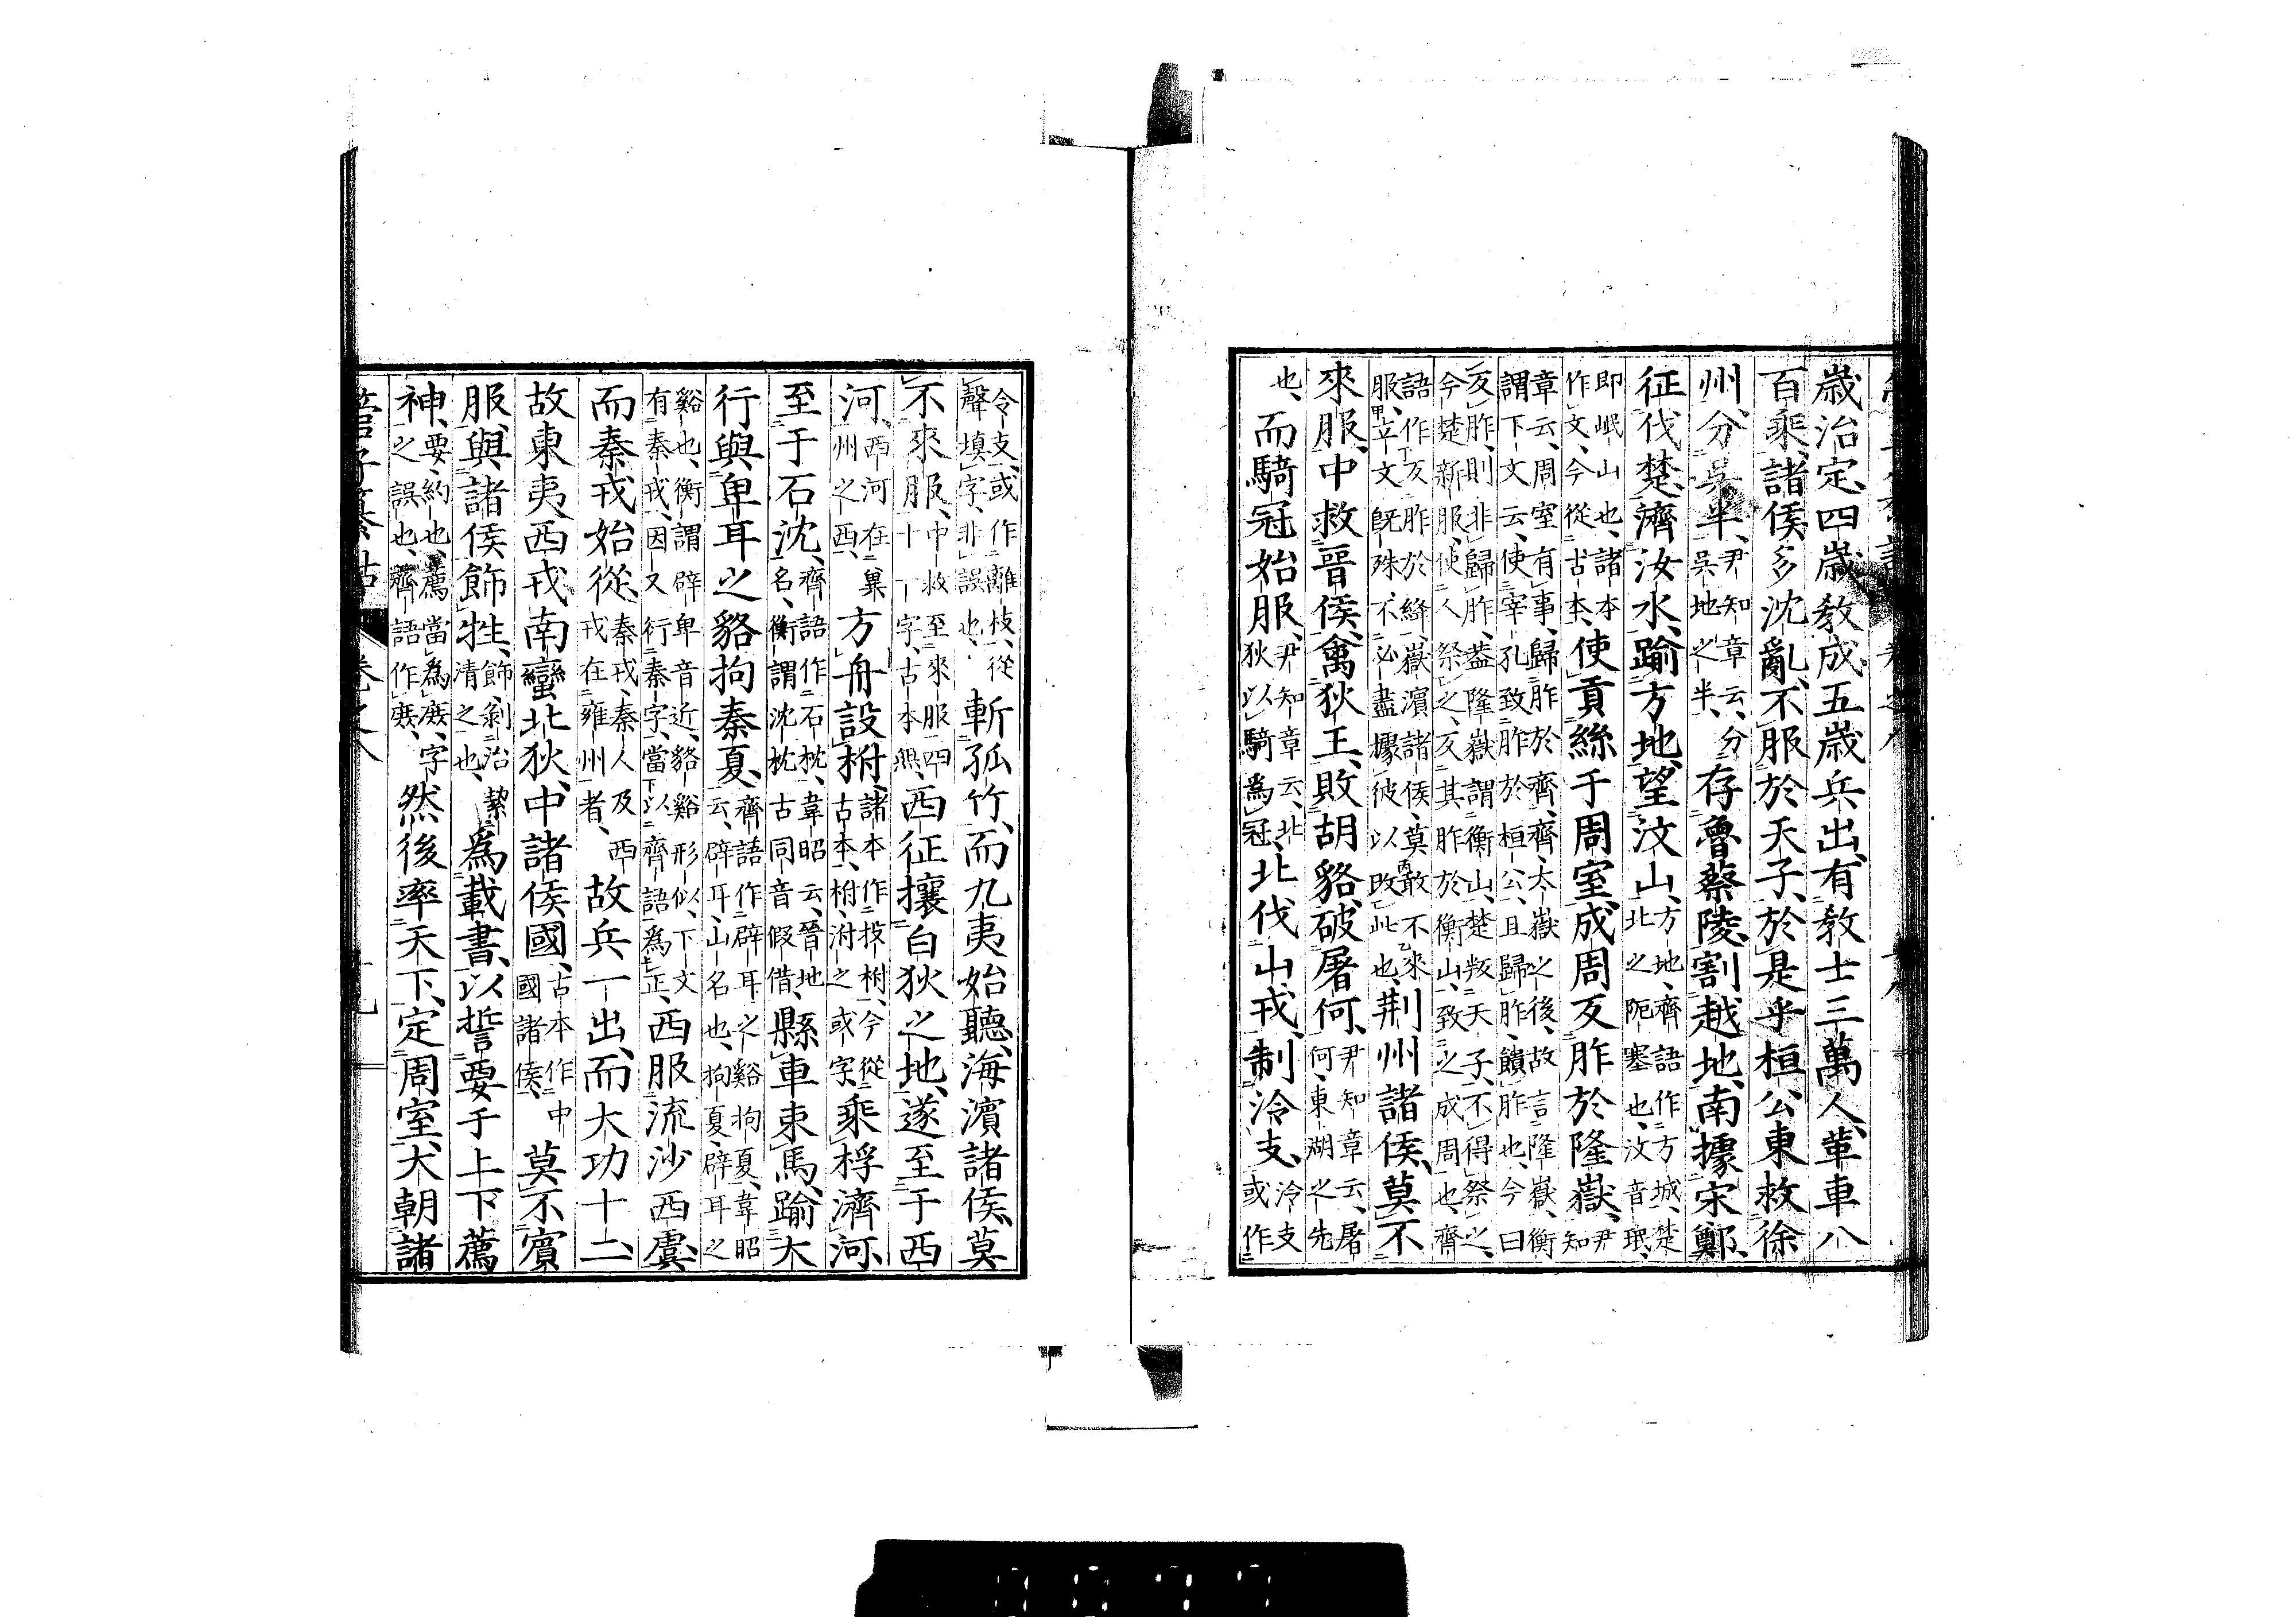 歲治定、四歲教成、五歲兵出、有教士三萬人、革車八
百乘、諸侯多沈亂、不服於天子、於是乎桓公東救徐
州、分吳半、尹知章云、分吳地之半、存魯蔡陵、割越地、南據宋鄭、
征伐楚、濟汝水、踰方地、望汶山、方地、齊語作方城、楚北之阨塞也、汶音珉、
即岷山也、諸本作文、今從古本、使貢絲于周室、成周反胙於隆嶽、尹知
章云、周室有事、歸胙於齊、齊、太嶽之後、故言隆嶽、衡謂下文云、使宰孔致胙於桓公、且歸胙、饋胙也、今曰
反胙、則非歸胙、蓋隆嶽謂衡山、楚叛天子、不得祭之、今楚新服、使人祭之、反其胙於衡山、致之成周也、齊
語作反胙於絳、嶽濱諸侯、莫敢不來服、立文既殊、不必盡據彼以改此也、荆州諸侯、莫不
來服、中救晉侯、禽狄王、敗胡貉、破屠何、尹知章云、屠何、東湖之先
也、而騎冠始服、尹知章云、北狄以騎爲冠、北伐山戎、制泠支、泠支或作
令支、或作離枝、從聲填字、非誤也、斬孤竹、而九夷始聽、海濱諸侯、莫
不來服、中救至來服四十一字、古本無、西征攘白狄之地、遂至于西
河、西河在冀州之西、方舟設柎、諸本作投柎、今從古本、柎、泭之或字、乘桴濟河、
至于石沈、齊語作石枕、韋昭云、晉地名、衡謂沈枕古同音假借、縣車束馬、踰大
行與卑耳之貉拘秦夏、齊語作辟耳之谿拘夏、韋昭云、辟耳、山名也、拘夏、辟耳之
谿也、衡謂辟卑音近、貉谿形似、下文有秦戎、因又行秦字、當以齊語爲正、西服流沙西虞、
而秦戎始從、秦戎、秦人及西戎在雍州者、故兵一出、而大功十二、
故東夷西戎南蠻北狄、中諸侯國、古本作中國諸侯、莫不賓
服、與諸侯飾牲、飾、刷治潔清之也、爲載書、以誓要于上下薦
神、要、約也、薦當爲庶、字之誤也、齊語作庶、然後率天下、定周室、大朝諸
管子纂詁 卷之八 十九